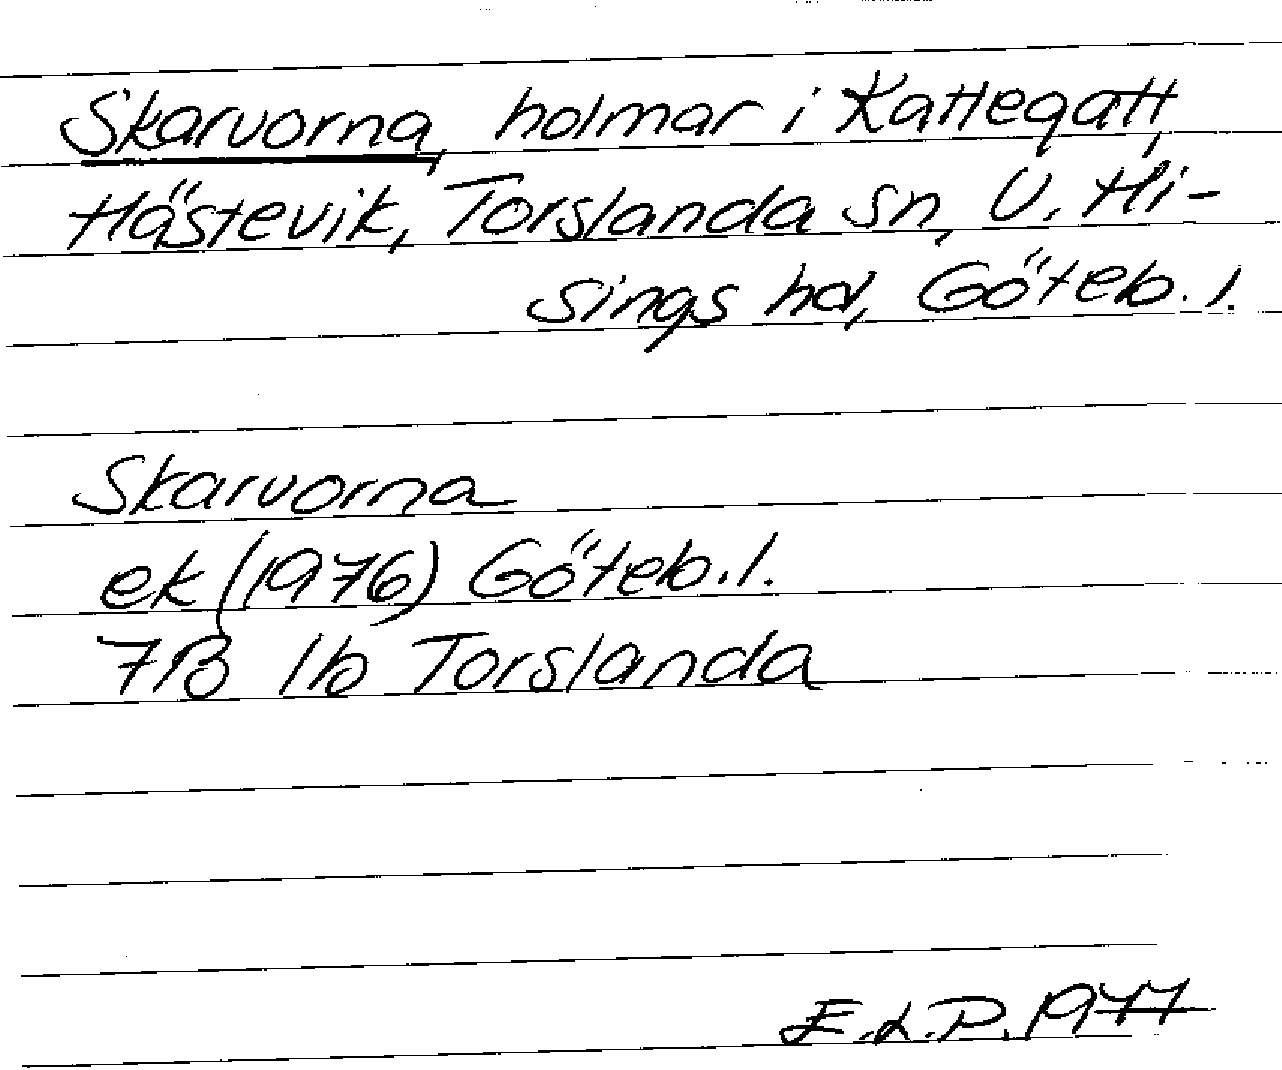 Skarvorna, holmar i Kattegatt,
Hästevik, Torslanda sn, V. Hi-
sings hd, Göteb. l.
Skarvorna
ek (1976) Göteb. l.
7B 1b Torslanda
E.L.P. 1977